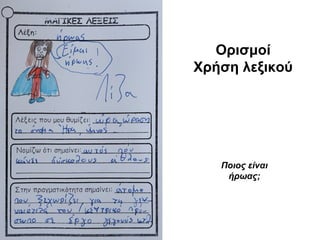 ΜΑΓΙΚΕΣ ΛΕΞΕΙΣ
Λέξη: ήρωας
Είμαι
ήρωας!
Λίζα
Λέξεις που μου θυμίζει: ηρα, ηρωση
το όνομα Ήρα,
Νομίζω ότι σημαίνει: αυτός που
κάνει δύσκολους άθλους
Στην πραγματικότητα σημαίνει: άτομο
που ξεχωρίζει για τη γεν-
ναιότητά του / κεντρικό πρό-
σωπο σε έργο
Ορισμοί
Χρήση λεξικού
Ποιος είναι
ήρωας;